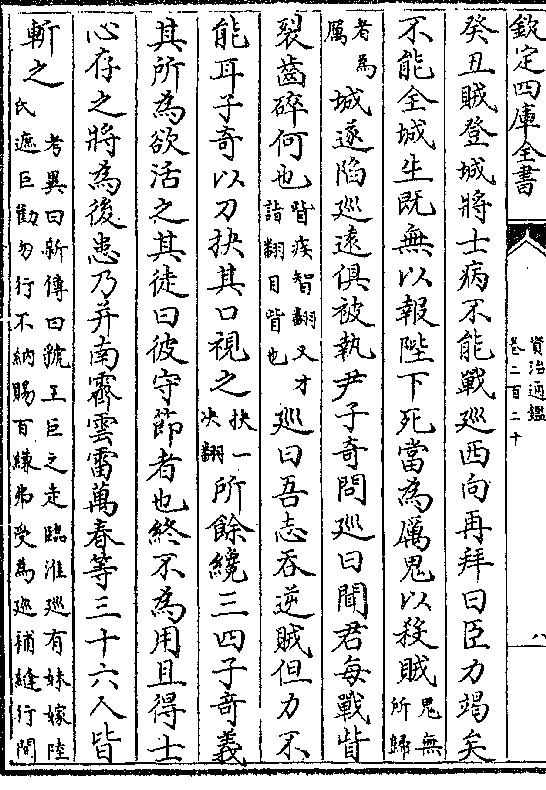 欽定四庫全書
資治通鑑
卷二百二十
八
癸丑賊登城將士病不能戰巡西向再拜曰臣力竭矣
不能全城生既無以報陛下死當為厲鬼以殺賊鬼無所歸
者為厲城遂陷巡遠俱被執尹子奇問巡曰聞君每戰眥
裂齒碎何也眥疾智翻又才詣翻目眥也巡曰吾志吞逆賊但力不
能耳子奇以刀抉其口視之抉一決翻所餘纔三四子竒義
其所為欲活之其徒曰彼守節者也終不為用且得士
心存之將為後患乃并南霽雲雷萬春等三十六人皆
斬之考異曰新傳曰虢王巨之走臨淮巡有妹嫁陸氏遮巨勸勿行不納賜百縑弗受為巡補縫行間